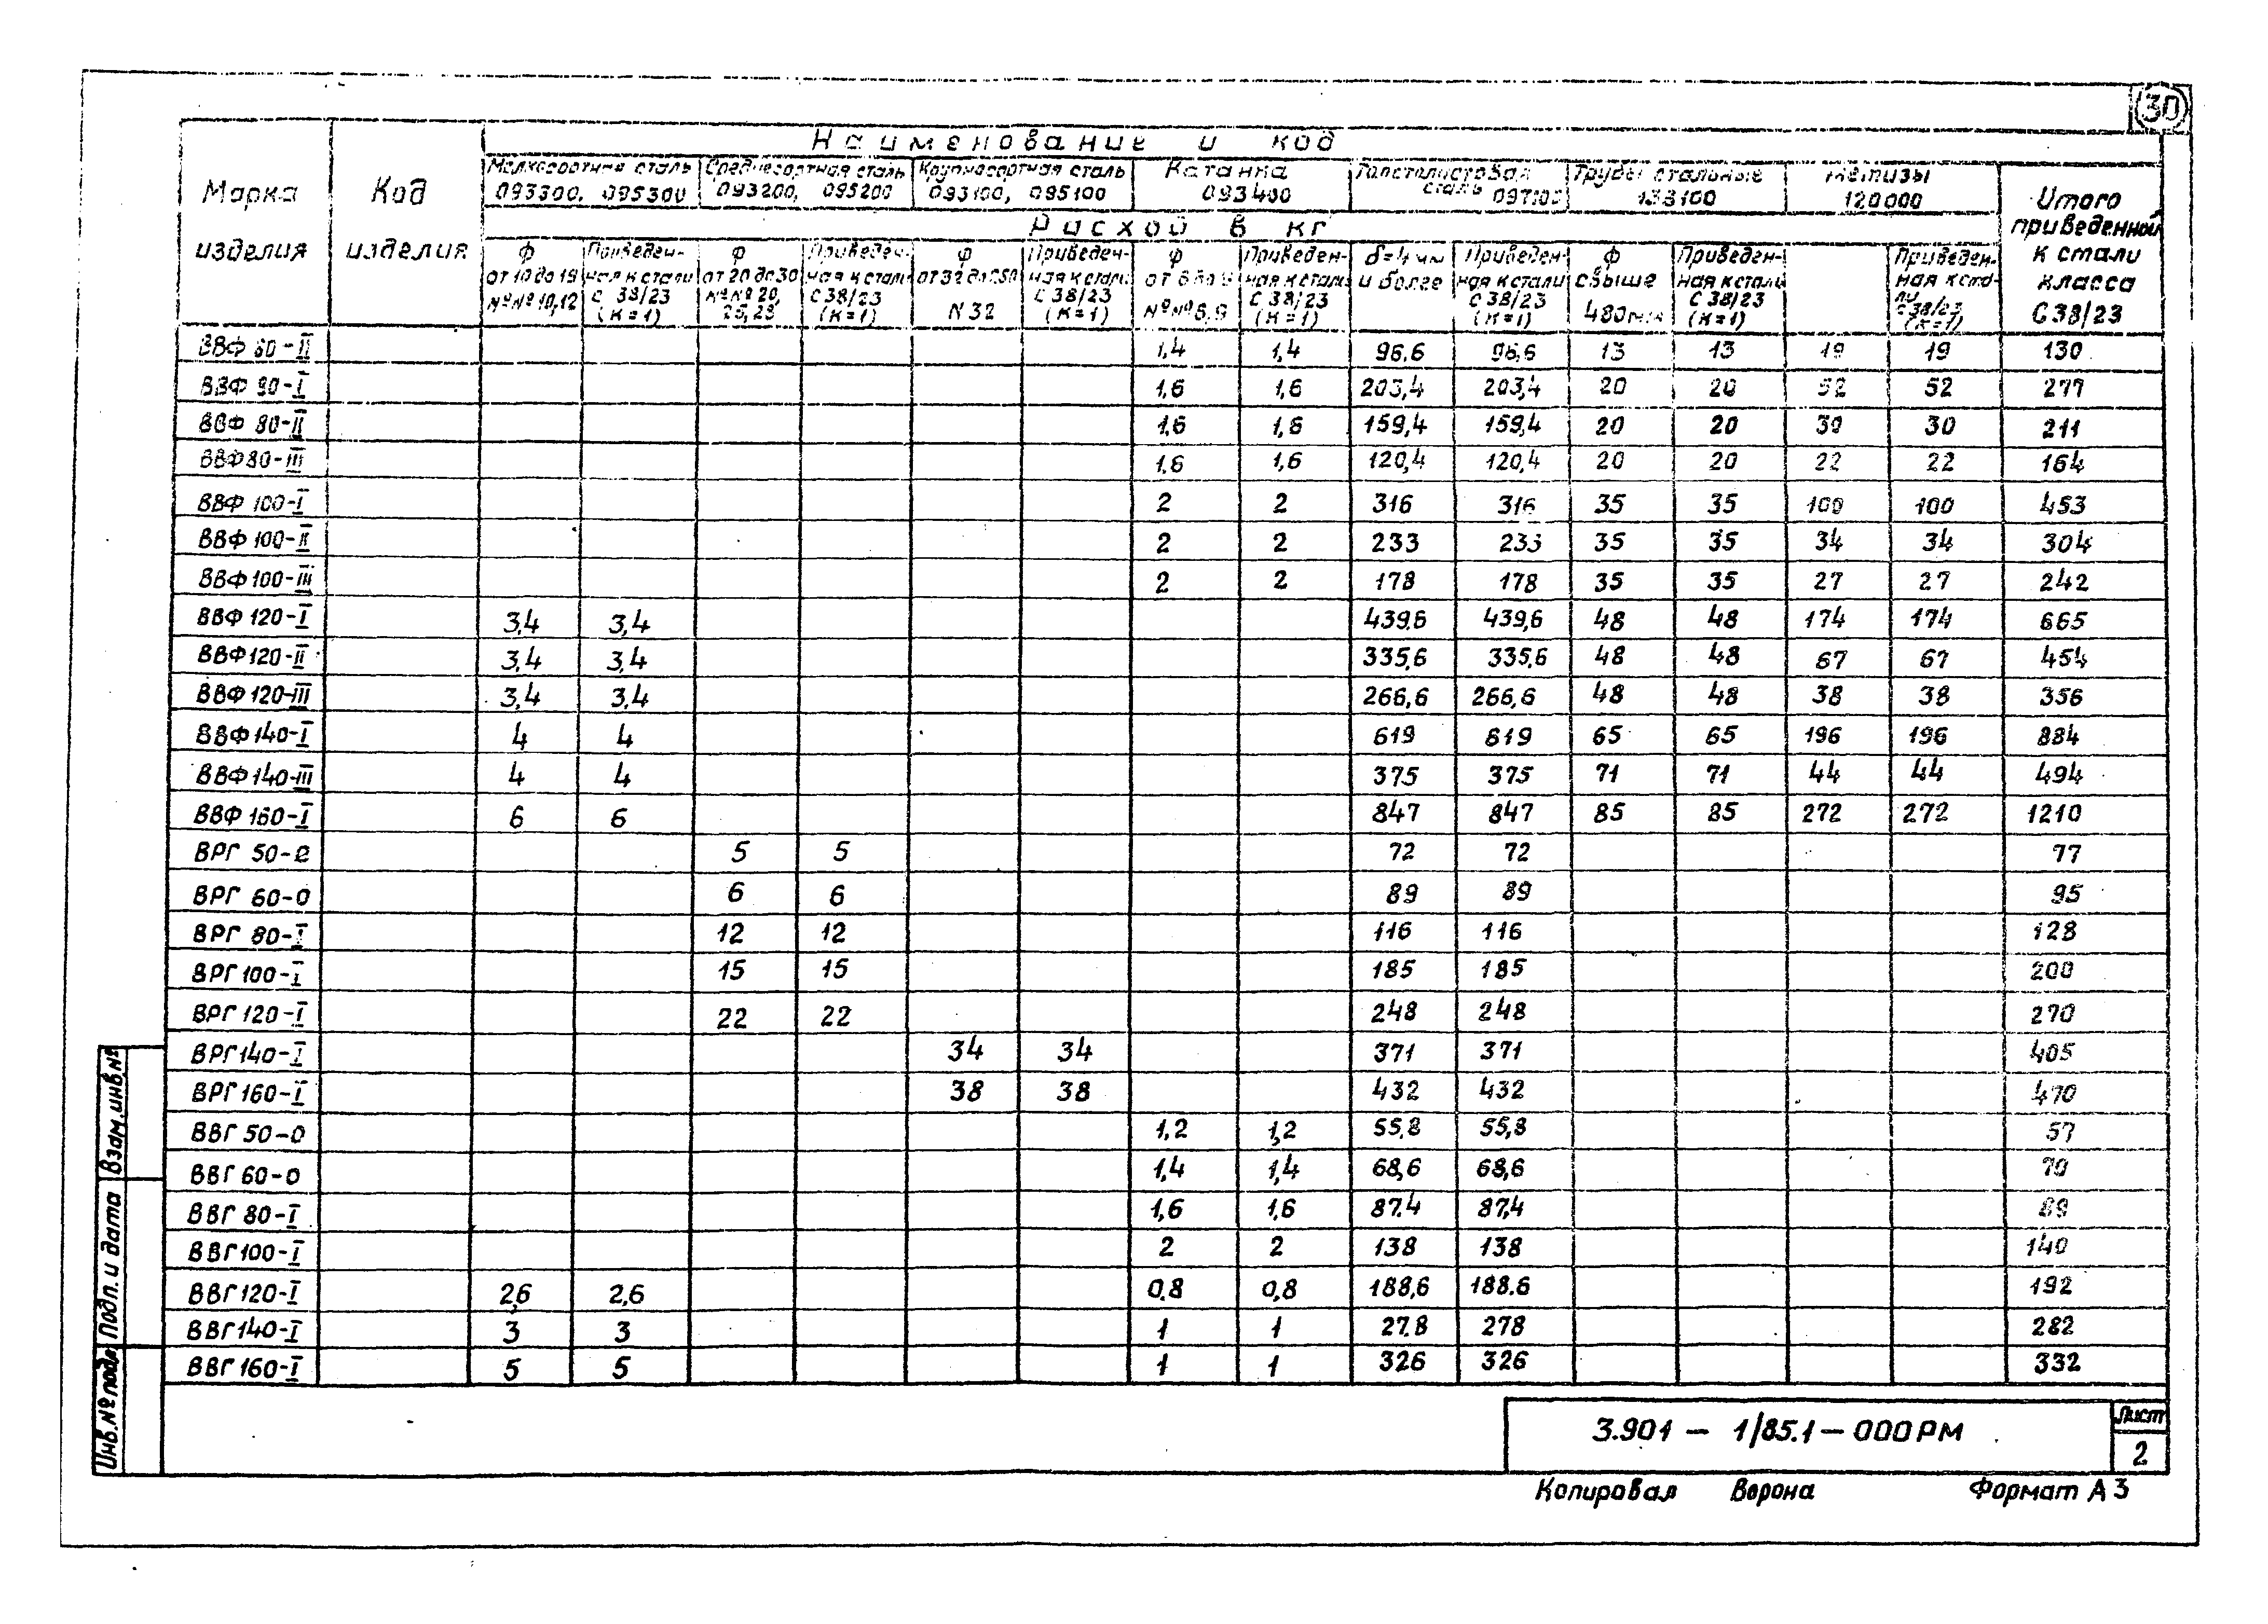 30
Наименование и код
Марка изделия
Код изделия
Мелкосортная сталь 093300, 095300
Среднесортная сталь 093200, 095200
Крупносортная сталь 093100, 095100
Катанка 093400
Толстолистовая сталь 097100
Трубы стальные 138100
Метизы 120000
Итого приведенной к стали класса С38/23
Расход в кг
ф от 10 до 19 №№ 10,12
Приведенная к стали С 38/23 (К=1)
ф от 20 до 30 №№ 20, 25, 28
Приведенная к стали С38/23 (К=1)
ф от 32 до N32
Приведенная к стали С 38/23 (К=1)
ф от 8 до 9 №№ 8.9
Приведенная к стали С 38/23 (К=1)
δ=4 мм и более
Приведенная к стали С 38/23 (К=1)
ф свыше 480мм
Приведенная к стали С 38/23 (К=1)
Приведенная к стали С38/23 (К=1)
ВВФ 60-II 1,4 1,4 96.6 96,6 13 13 19 19 130
ВВФ 80-I 1,6 1,6 203,4 203,4 20 20 52 52 277
ВВФ 80-II 1,6 1,6 159,4 159,4 20 20 30 30 211
ВВФ80-III 1.6 1,6 120,4 120,4 20 20 22 22 164
ВВФ 100-I 2 2 316 316 35 35 100 100 453
ВВФ 100-II 2 2 233 233 35 35 34 34 304
ВВФ100-III 2 2 178 178 35 35 27 27 242
ВВФ 120-I 3,4 3,4 439.6 439,6 48 48 174 174 665
ВВФ120-II 3,4 3,4 335,6 335,6 48 48 67 67 454
ВВФ120-III 3,4 3,4 266,6 266,6 48 48 38 38 356
ВВФ140-I 4 4 619 619 65 65 196 196 884
ВВФ140-III 4 4 375 375 71 71 44 44 494
ВВФ 160-I 6 6 847 847 85 85 272 272 1210
ВРГ 50-0 5 5 72 72 77
ВРГ 60-0 6 6 89 89 95
ВРГ 80-I 12 12 116 116 128
ВРГ100-I 15 15 185 185 200
ВРГ120-I 22 22 248 248 270
ВРГ140-I 34 34 371 371 405
ВРГ160-I 38 38 432 432 470
ВВГ 50-0 1,2 1,2 55,8 55,8 57
ВВГ 60-0 1,4 1,4 68,6 68,6 70
ВВГ 80-I 1,6 1,6 87.4 87,4 89
ВВГ100-I 2 2 138 138 140
ВВГ120-I 2,6 2,6 0.8 0,8 188,6 188.6 192
ВВГ140-I 3 3 1 1 27.8 278 282
ВВГ 160-I 5 5 1 1 326 326 332
Взам.инв.№
Подп. и дата
Инв.№ подл
3.901 - 1/85.1 - 000РМ
Лист
2
Копировал Ворона Формат А3